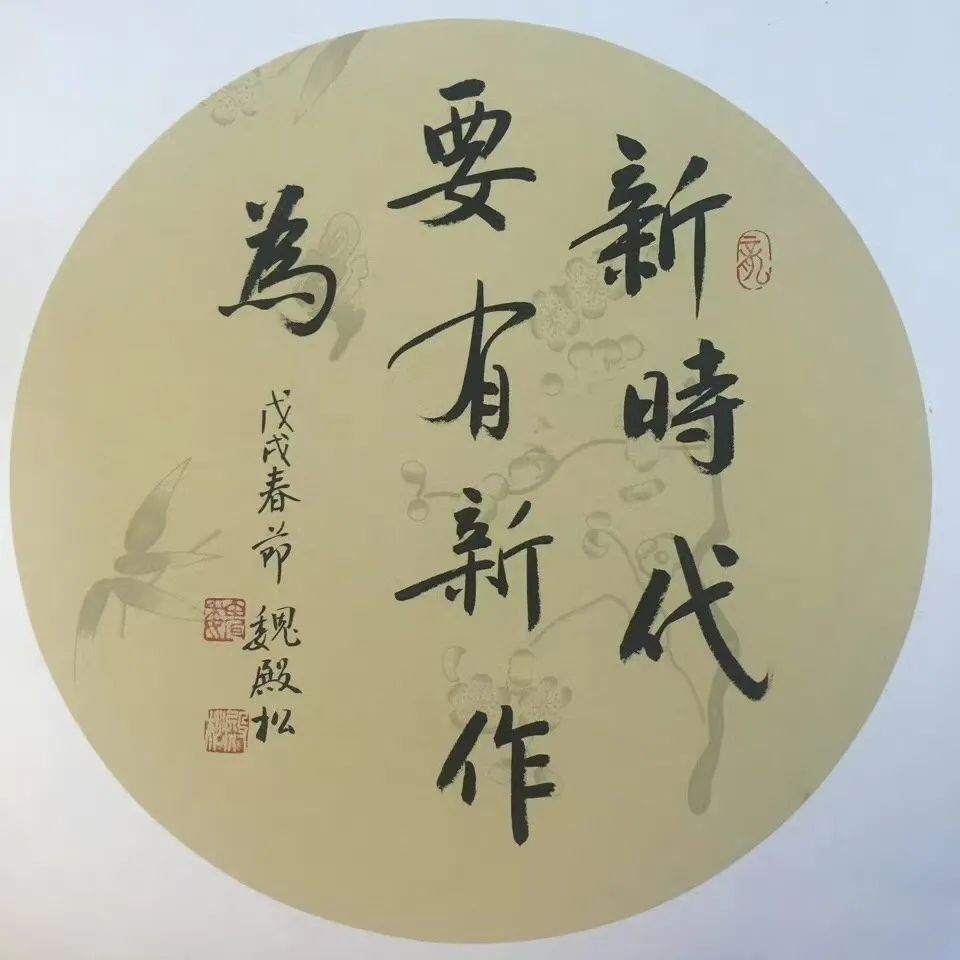 新時代
要有新作
為
戊戌春節
魏殿松